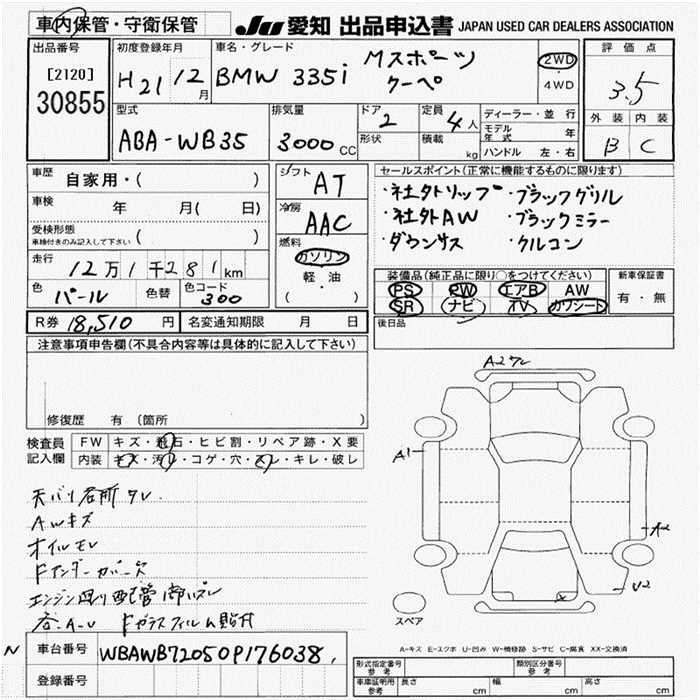 車内保管・守衛保管
JU 愛知 出品申込書 JAPAN USED CAR DEALERS ASSOCIATION
出品番号
[2120]
30855
初度登録年月
H21 12月
車名・グレード
BMW 335i Mスポーツ
クーペ
2WD
・
4WD
評価点
3.5
外装 内装
B C
型式
ABA-WB35
排気量
3000CC
ドア
2
形状
定員
4人
積載
kg
ディーラー・並行
モデル年式 年
ハンドル 左・右
車歴 自家用・( )
車検 年 月( 日)
受検形態
車検付きのみ記入して下さい ( )
走行 12万1千281km
色 パール 色替 色コード 300
シフト
AT
冷房
AAC
燃料
ガソリン
・
軽・油
( )
セールスポイント(正常に機能するものに限ります)
・社外トリップ ・ブラックグリル
・社外AW ・ブラックミラー
・ダウンサス ・クルコン
装備品(純正品に限り○をつけてください)
PS PW エアB AW
SR ナビ TV カワシート
新車保証書
有・無
後日品
R券 18,510円 名変通知期限 月 日
注意事項申告欄(不具合内容等は具体的に記入して下さい)
修復歴 有 (箇所 )
検査員
記入欄
FW キズ・飛石・ヒビ割・リペア跡・X要
内装 キズ・汚れ・コゲ・穴・スレ・キレ・破レ
AWキズ
オイルモレ
A1
A2
U2
スペア
A-キズ E-エクボ U-凹み W-補修跡 S-サビ C-腐食 XX-交換済
N
車台番号 WBAWB72050P176038
登録番号
形式指定番号
参考
類別区分番号
参考
車庫証明用
参考
長さ cm 幅 cm 高さ cm